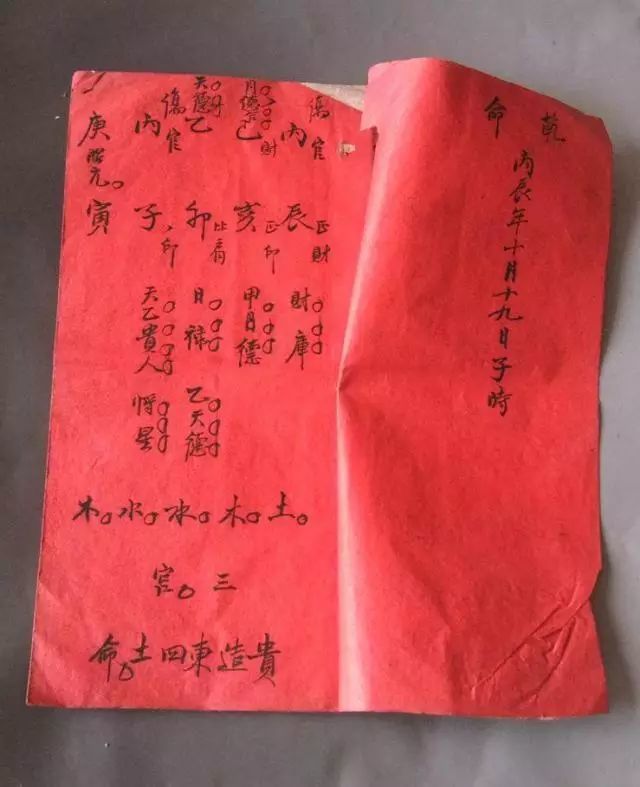 乾命
丙辰年十月十九日子時
傷官
丙辰
正財
財庫
財
己亥
正印
甲月德
天德
乙卯
比肩
日祿
乙天德
傷官
丙子
印
天乙貴人
將星
庚寅
土。木。水。水。木。
三。官
貴造東四土命